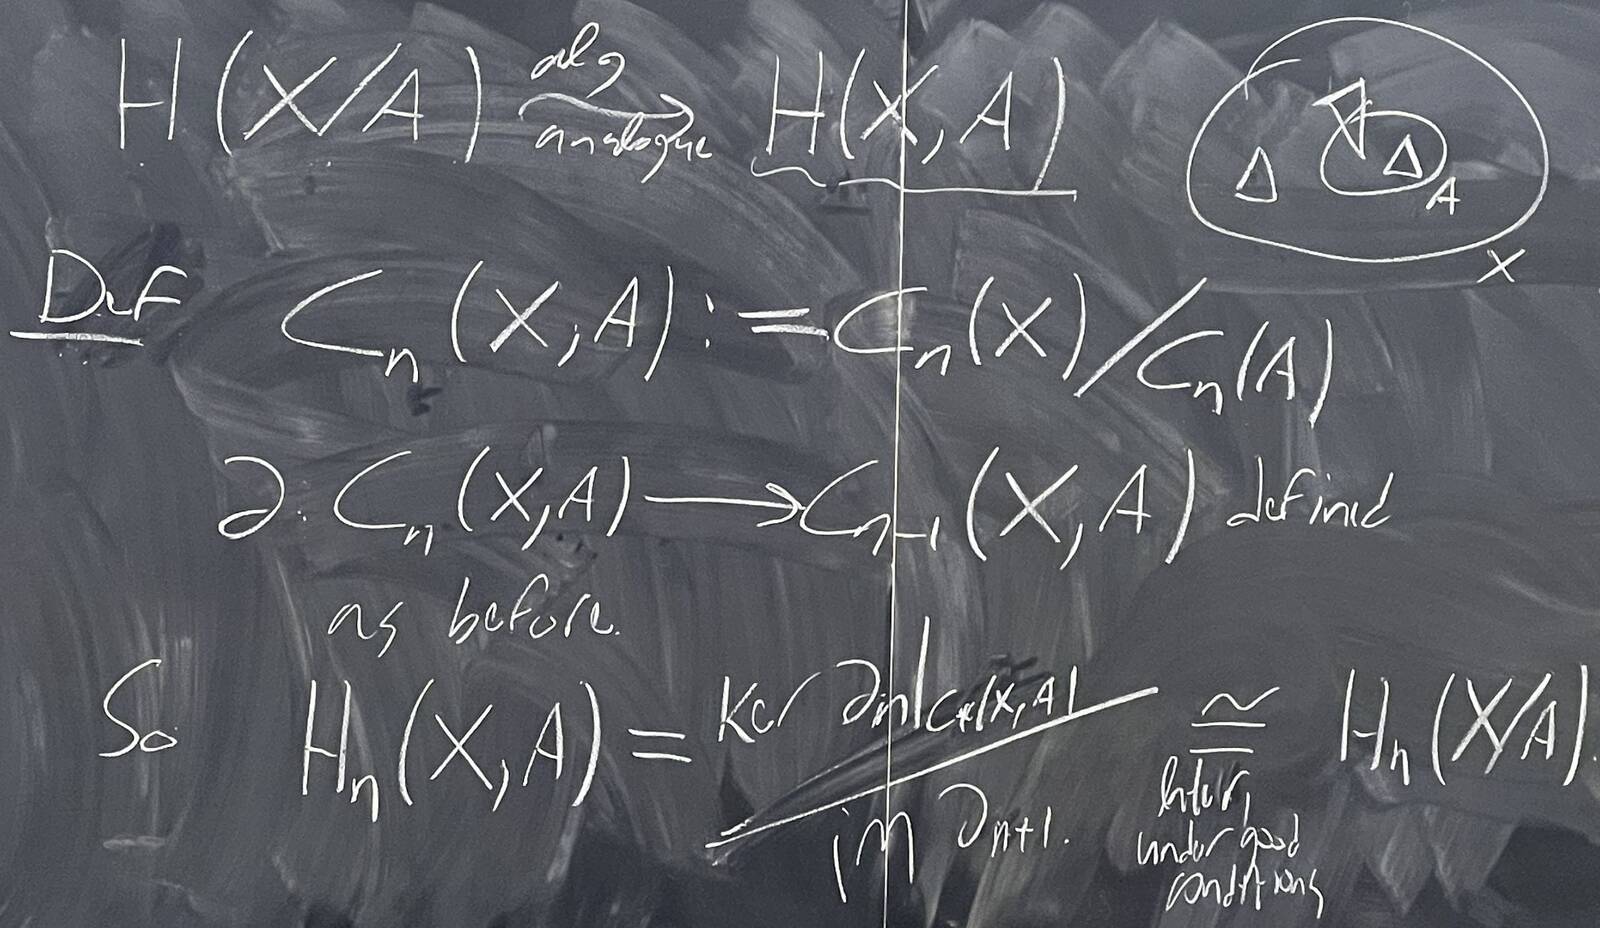 H(X/A) alg analogue → H(X,A)
Δ Δ A
X
Def Cₙ(X,A) := Cₙ(X)/Cₙ(A)
∂: Cₙ(X,A) → Cₙ₋₁(X,A) defined
as before.
So Hₙ(X,A) = Ker ∂ₙ|C*(X,A) / im ∂ₙ₊₁. ≅ Hₙ(X/A).
later,
under good
conditions